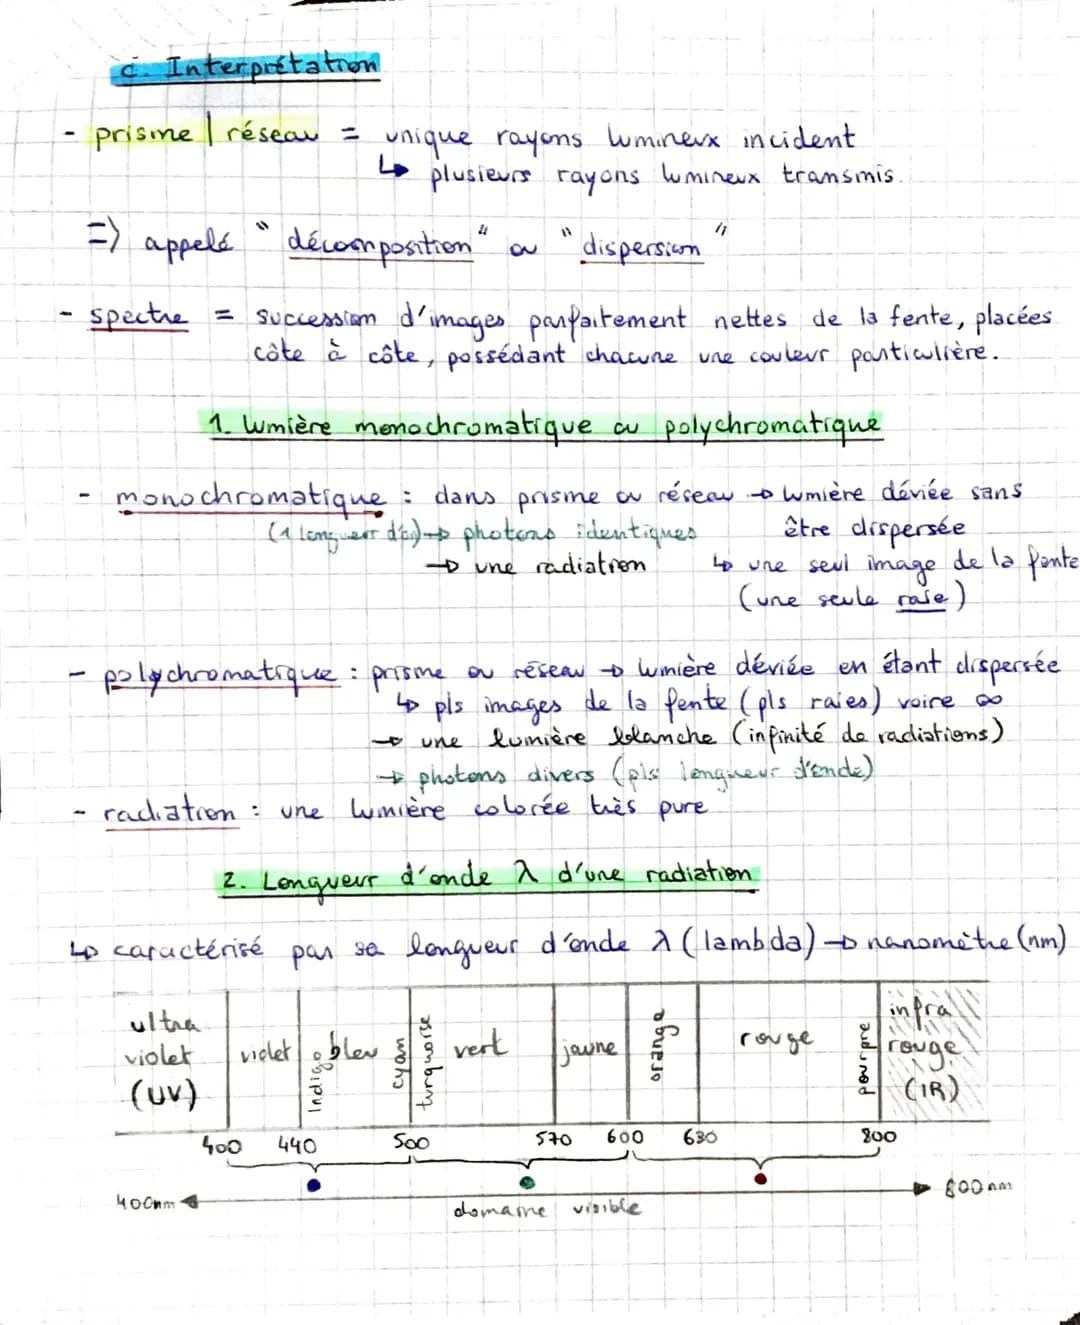 c. Interprétation
- prisme | réseau = unique rayons lumineux incident
↳ plusieurs rayons lumineux transmis.
=> appelé "décomposition" ou "dispersion"
- spectre = succession d'images parfaitement nettes de la fente, placées
côte à côte, possédant chacune une couleur particulière.
1. lumière monochromatique ou polychromatique
- monochromatique : dans prisme ou réseau → lumière déviée sans
être dispersée
(1 longueur d'o) → photons identiques
→ une radiation
↳ une seul image de la fente
(une seule raie)
- polychromatique : prisme ou réseau → lumière déviée en étant dispersée
↳ pls images de la fente (pls raies) voire ∞
→ une lumière blanche (infinité de radiations)
→ photons divers (pls longueur d'onde)
- radiation : une lumière colorée très pure
2. Longueur d'onde λ d'une radiation
↳ caractérisé par sa longueur d'onde λ (lambda) → nanomètre (nm)
ultra violet (UV) violet Indigo bleu cyan turquoise vert jaune orange rouge pourpre infra rouge (IR)
400 440 500 570 600 630 800
400nm domaine visible 800 nm